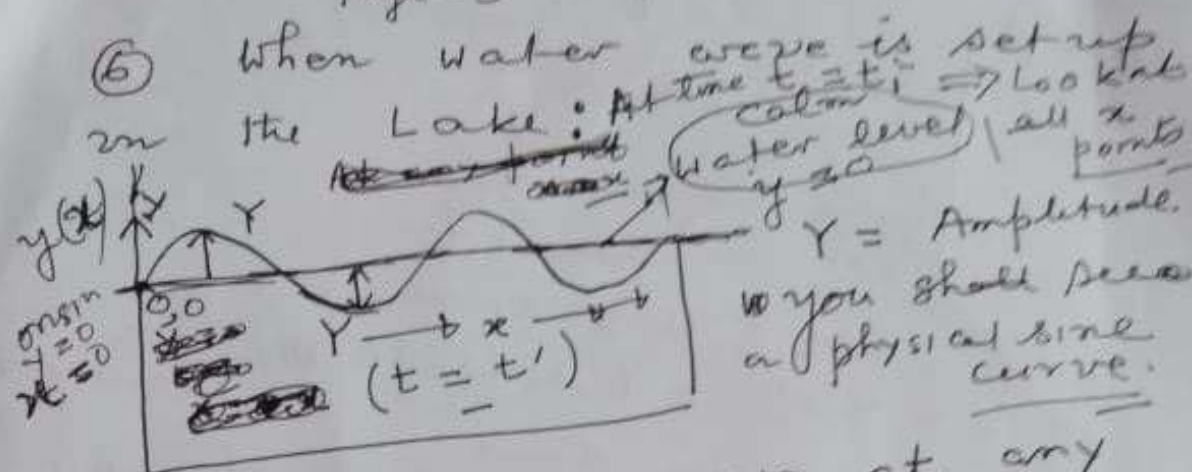 ⑥ When water wave is set up
in the Lake : At time t = t₁ ⇒ Look at
all x
points
calm
water level
y = 0
y(x)
Y
Y
Y = Amplitude.
you shall see
a physical sine
curve.
origin
y = 0
x = 0
0,0
Y → x →
(t = t')
at any